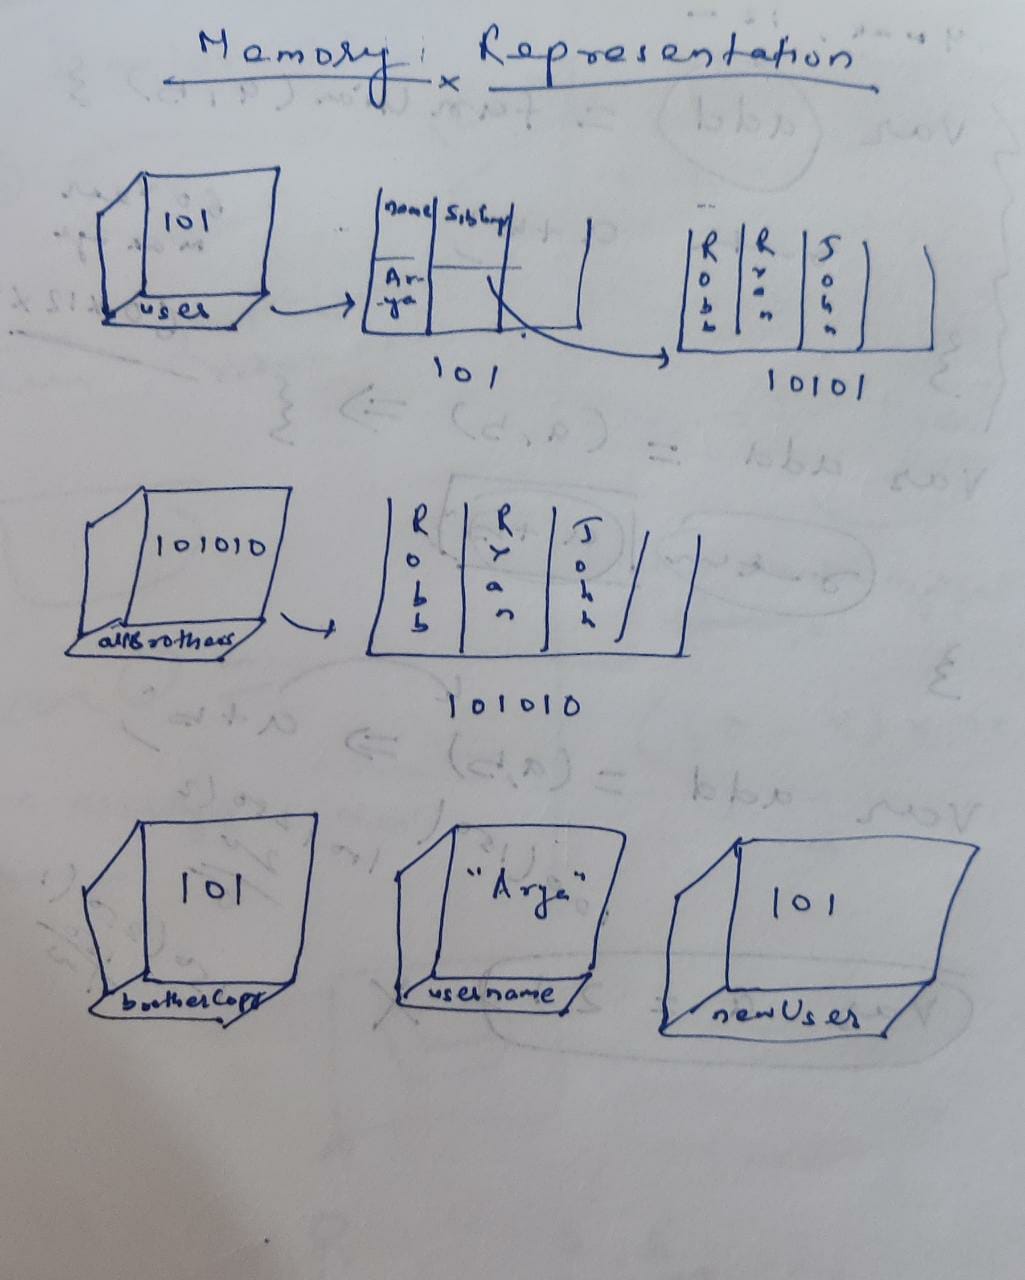 Memory Representation
101
user
name siblings
Arya
101
Robb Ryan John
10101
101010
allBrothers
Robb Ryan John
101010
101
brotherCopy
"Arya"
username
101
newUser